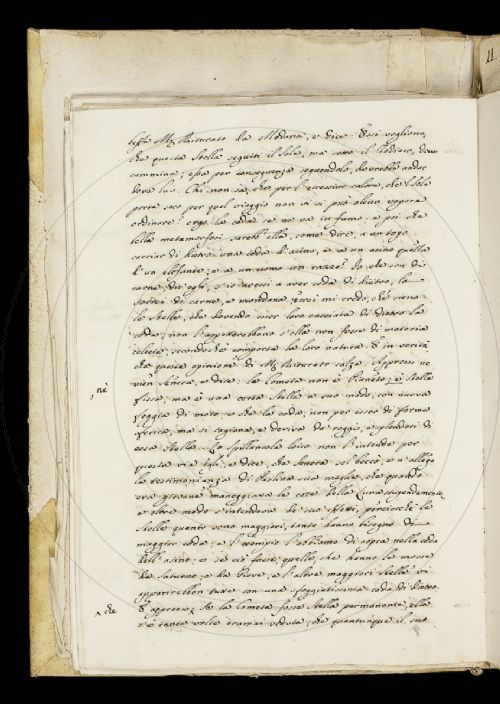 11
questa stella seguiti il Sole, ma sotto il Zodiaco, dove
cammina; e per conseguenza seguendolo, dovrebbe andar
Chi non sa, che per l'eccessivo calore, che 'l Sole
porta seco per quel viaggio non vi si può alcun vapore
ordinare? ergo la coda se ne va in fumo, e poi che
bella metamorfosi sarebb' ella, come dire, a un topo
cacciar di dietro una coda d'asino, e a un asino quella
d'un elefante, e a un uomo un razzo? Io che son di
carne, e io avessi a aver coda di dietro, la
di carne, e mondana; così mi credo, che sieno
le stelle, che dovendo esser loro cacciata di dietro la
coda, non l'aspetterebbono s'ella non fosse di materia
celeste, secondo che comporta la loro natura. E in verità
che questa opinione di calza. Appresso ne
vien Seneca, e dice: la Cometa non è Pianeto, è stella
, nè
fissa, ma è una certa stella a suo modo, con nuova
foggia di moto, e che la coda, non per esser di forma
sferica, ma si cagiona, e deriva da raggio, e splendori di
essa stella. Lo Spillancola loico non l'intende per
questa via e dice, che Seneca sel becca, e n'allega
la testimonianza di sua moglie, che quando
era giovane maneggiava le cose della Luna stupendamente,
e oltre modo s'intendeva de' suoi fatti, perciocchè le
stelle quanto sono maggiori, tanto hanno bisogno di
maggior coda, e l'esempio l'abbiamo di sopra nella coda
dell'asino, e se ciò fosse, quelle, che hanno la mossa
da Saturno, e da Giove, e l'altre maggiori stelle vi
apparirebbon tutte con una sfoggiatissima coda di dietro.
E appresso; se la Cometa fosse stella permanente, ella
^ che
s'è tante volte oramai veduta, che quantunque il suo